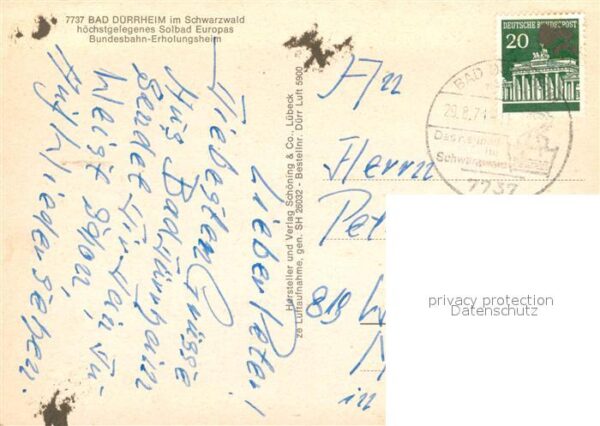 7737 BAD DÜRRHEIM im Schwarzwald
höchstgelegenes Solbad Europas
Bundesbahn-Erholungsheim
Lieber Peter!
Liebesten Grüsse
aus Bad Dürrheim
sendet Dir Dein
Weißt schon,
Auf Wiedersehen.
Hersteller und Verlag Schöning & Co., Lübeck
ze Luftaufnahme, gen. SH 26032 - Bestellnr. Dürr Luft 5900
DEUTSCHE BUNDESPOST
20
BAD
29.8.71
im
Schwarzwald
7737
An
Herrn
Pet
819
in
privacy protection
Datenschutz